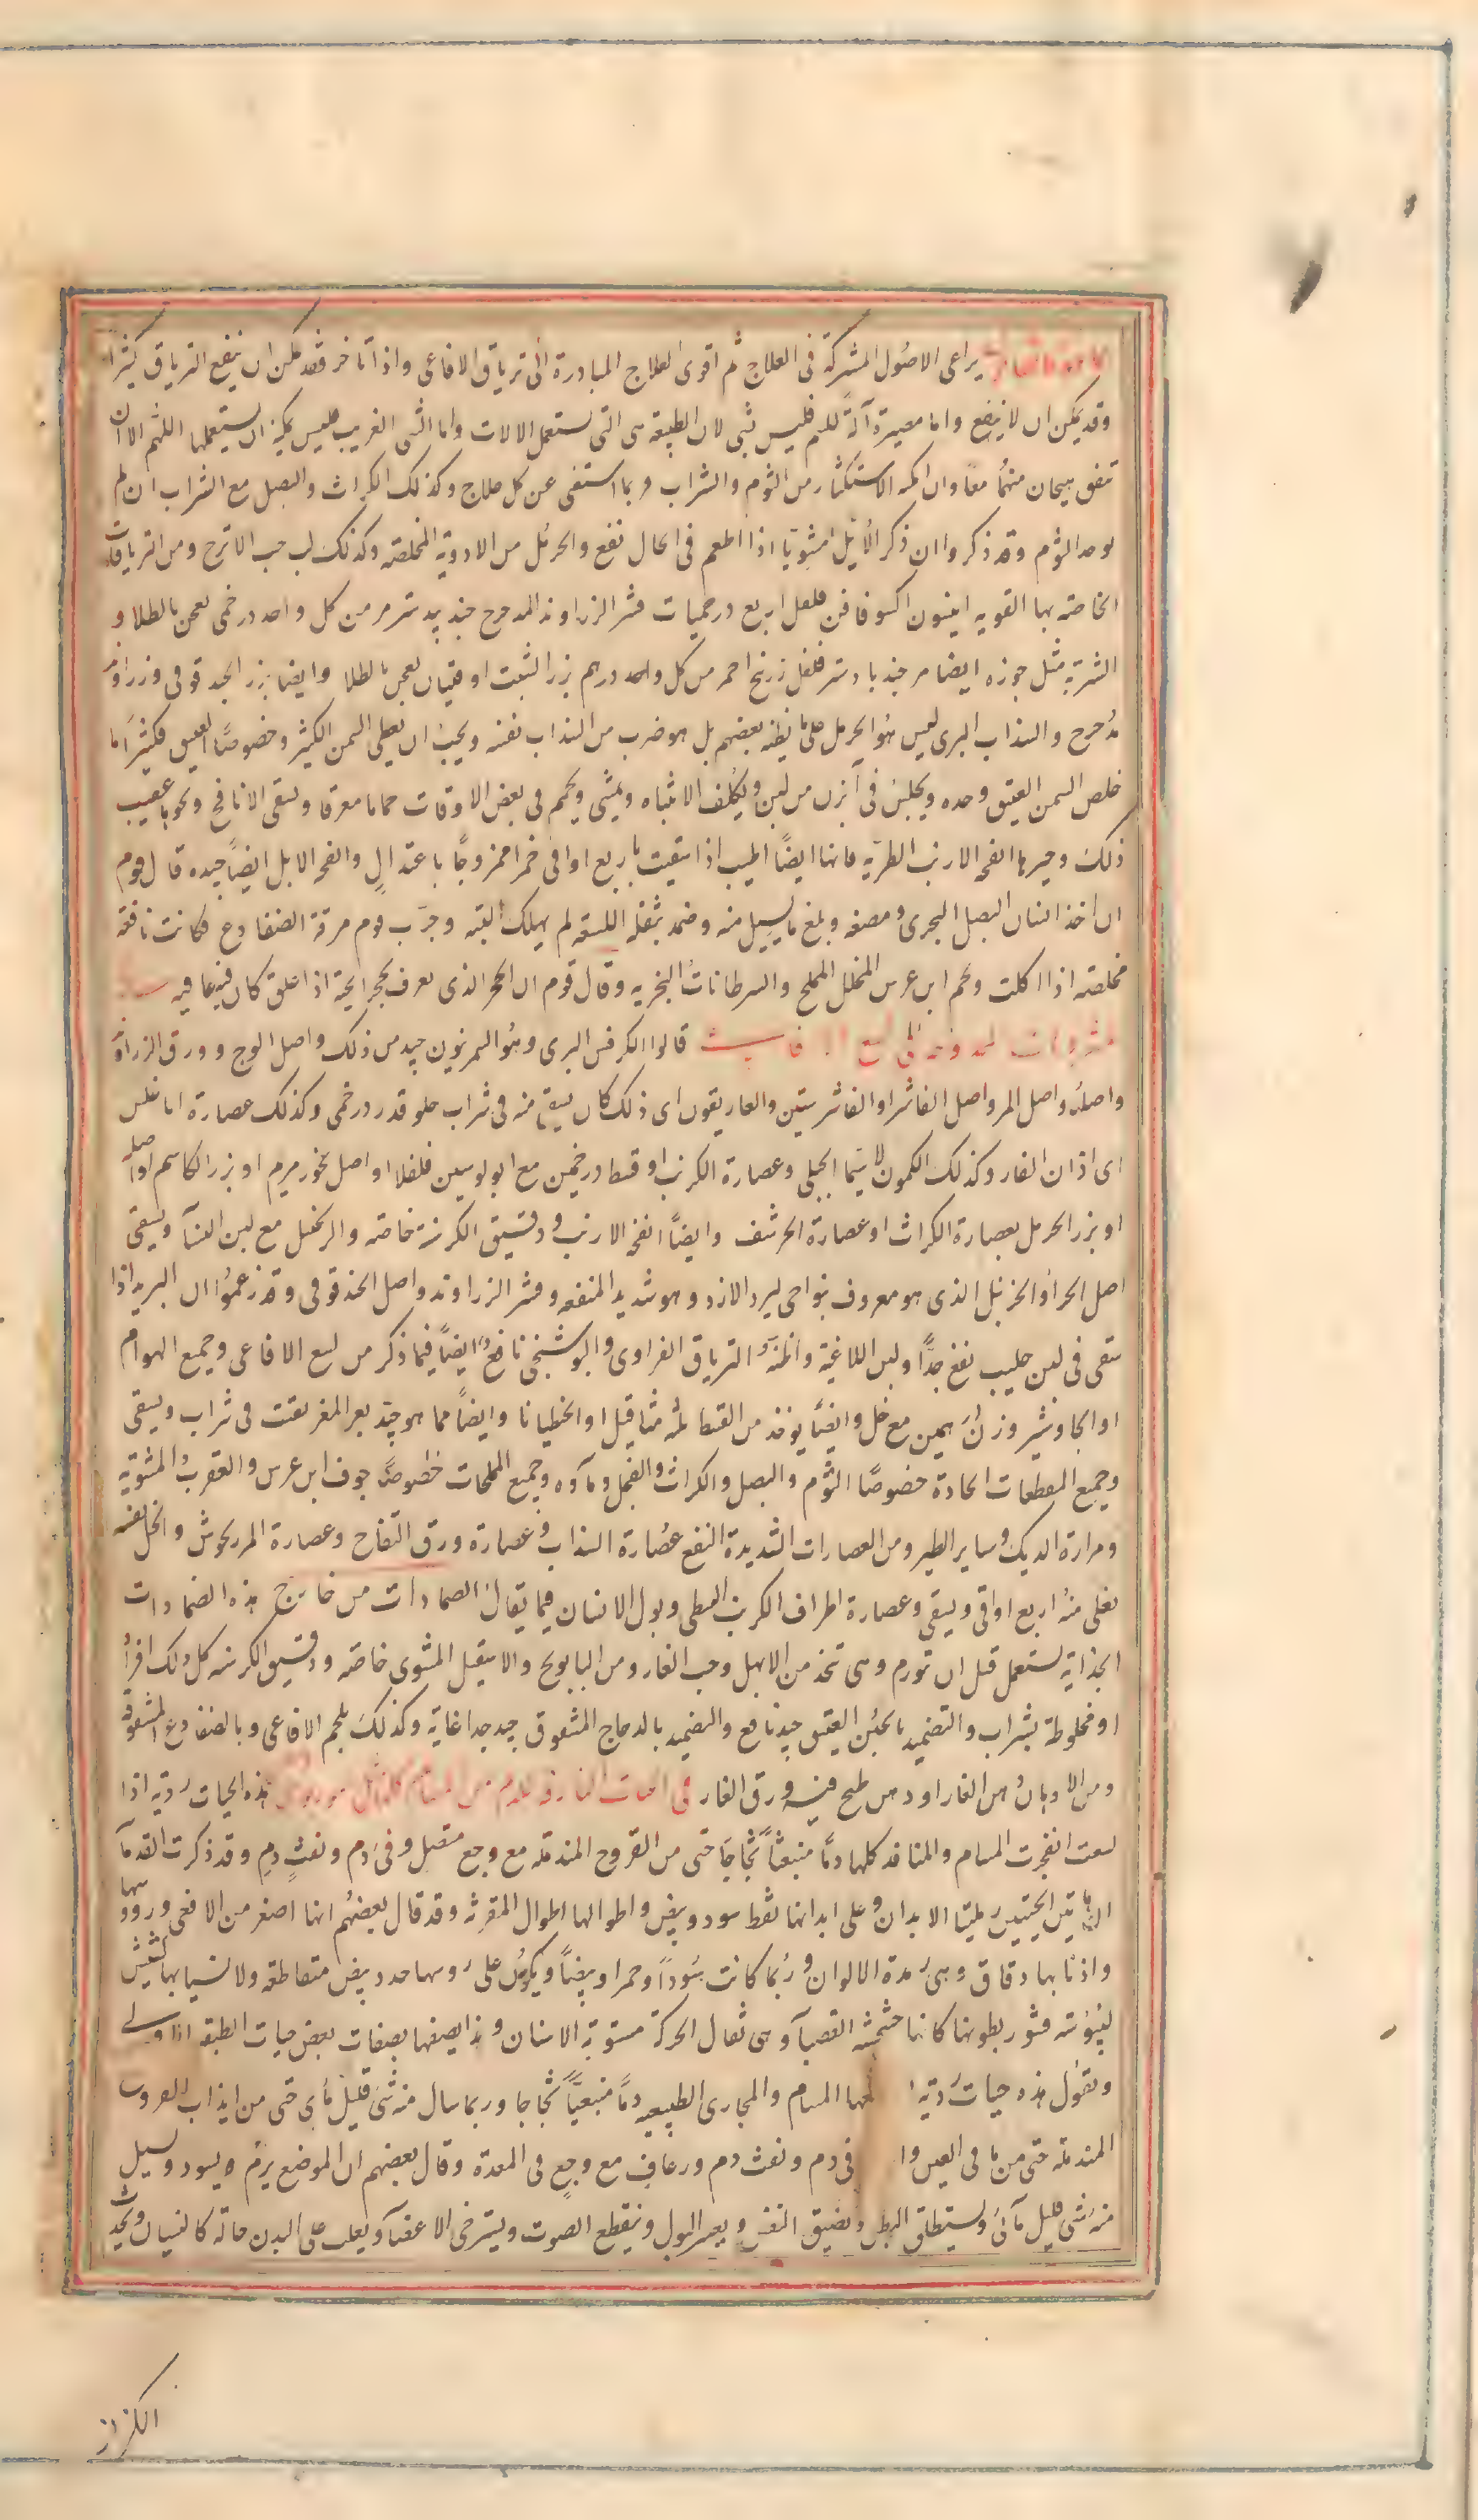 يراعى الاصول المشتركة فى العلاج ثم اقوى العلاج المبادرة الى ترياق الافاعى واذا تاخر فقد يمكن ان ينفع الترياق كثيرا
وقد يمكن ان لا ينفع واما مصيره آلة للسم فليس بشى لان الطبيعة هى التى تستعمل الالات واما الشى الغريب فليس يمكنه ان يستعملها اللهم الا ان
تتفق هيجان منهما معا وان امكنه الاستكثار من الثوم والشراب ربما استغنى عن كل علاج وكذلك الكراث والبصل مع الشراب ان لم
يوجد الثوم وقد ذكروا ان ذكر الأيل مشويا اذا اطعم فى الحال نفع والحرمل من الادوية المخلصة وكذلك لب حب الاترج ومن الترياقات
الخاصة بها القويه انيسون اكسوفافن فلفل اربع درخميات قشر الزراوند المدحرج جندبيدستر مر من كل واحد درخمى يعجن بالطلا و
الشربة مثل جوزه ايضا مر جندبادستر فلفل زرنيخ احمر من كل واحد درهم بزر الشبت اوقيتان يعجن بالطلا وايضا بزر الحندقوقى وزراوند
مدحرج والسذاب البرى ليس هو الحرمل على ما يظنه بعضهم بل هو ضرب من السذاب نفسه ويجب ان يعطى السمن الكثير وخصوصا العتيق فكثيرا ما
خلص السمن العتيق وحده ويجلس فى آبزن من لبن ويكلف الانتباه ويمشى ويحمم فى بعض الاوقات حماما معرقا ويسقى الانافح ونحوها عقيب
ذلك وخيرها انفحة الارنب الطريه فانها ايضا اطيب اذا سقيت باربع اواقى خمرا ممزوجا باعتدال وانفحة الابل ايضا جيده قال قوم
ان اخذ انسان البصل البحرى ومضغه وبلع ما يسيل منه وضمد بثفله اللسعة لم يهلك البتة وجرب قوم مرقة الضفادع فكانت نافعة
مخلصة اذا اكلت ولحم ابن عرس المخلل المملح والسرطانات البحرية وقال قوم ان الحجر الذى يعرف بحجر الحية اذا علق كان فيه عافيه
قالوا الكرفس البرى وهو السمرنيون جيد من ذلك واصل الوج وورق الزراوند
واصله واصل المر واصل الفاشرا او الفاشرستين والغاريقون اى ذلك كان يسقى منه فى شراب حلو قدر درخمى وكذلك عصارة اناغلس
اى اذان الفار وكذلك الكمون لا سيما الجبلى وعصارة الكرنب او قسط درخمين مع ابولوسين فلفلا او اصل بخور مريم او بزر الكاسم او اصله
او بزر الحرمل بعصارة الكراث او عصارة الحرشف وايضا انفحة الارنب ودقيق الكرسنة خاصة والزنجبيل مع لبن النسآ ويسقى
اصل الحزا والحزنبل الذى هو معروف بنواحى ليرد الازد وهو شديد المنفعه وقشر الزراوند واصل الحندقوقى وقد زعموا ان البريد اذا
سقى فى لبن حليب نفع جدا ولبن اللاغية واظنه الترياق الفراوى والبوشنجى نافع ايضا فيما ذكر من لسع الافاعى وجميع الهوام
او الجاوشير وزن درهمين مع خل وايضا يوخذ من القسط ثلثه مثاقيل او الجنطيانا وايضا مما هو جيد بعر المعز يفتت فى شراب ويسقى
وجميع المقطعات الحادة خصوصا الثوم والبصل والكراث والفجل ومآوه وجميع المملحات خصوصا جوف ابن عرس والعقرب المشوية
ومرارة الديك وساير الطير ومن العصارات الشديدة النفع عصارة السذاب وعصارة ورق التفاح وعصارة المرزنجوش والخل نفسه
يغلى منه اربع اواقى ويسقى وعصارة اطراف الكرنب النبطى وبول الانسان فيما يقال الضمادات من خارج هذه الضمادات
الجذابة تستعمل قبل ان تورم وهى تتخذ من الابهل وحب الغار ومن البابونج والاسقيل المشوى خاصة ودقيق الكرسنه كل ذلك افرادا
او مخلوطة بشراب والتضميد بالجبن العتيق جيد نافع والتضميد بالدجاج المشقوق جيد جدا غاية وكذلك بلحم الافاعى وبالضفادع المشقوقة
ومن الادهان دهن الغار او دهن طبخ فيه ورق الغار هذه الحيات رديه اذا
لسعت انفجرت المسام والمنافذ كلها دما منبعثا ثجاجا حتى من القروح المندملة مع وجع مقبل وقىء دم ونفث دم وقد ذكرت القدمآ
ان هاتين الحيتين رمليتا الابدان وعلى ابدانها نقط سود وبيض واطوالها اطوال المقرنة وقد قال بعضهم انها اصغر من الافعى وروسها
واذنابها دقاق وهى رمدة الالوان وربما كانت سودا وحمرا وبيضا ويكون على روسها جدد بيض متقاطعه ولانسيابها كشيش
ليبوسة قشور بطونها كانها خشخشة القصبآ وهى ثقال الحركة مستوية الاسنان وهذا يصفها بصفات بعض حيات الطبقه
ونقول هذه حيات رديه المسام والمجارى الطبيعيه دما منبعثا ثجاجا وربما سال منه شى قليل مأى حتى من ايذاب القروح
المندملة حتى من ما قى العين و فى دم ونفث دم ورعاف مع وجع فى المعدة وقال بعضهم ان الموضع يرم ويسود ويسيل
منه شى قليل مآى ويستطلق البطن ويضيق النفس ويعسر البول وينقطع الصوت ويسترخى الاعضآ ويغلب على البدن حالة كالنسيان ويحدث
الكزاز